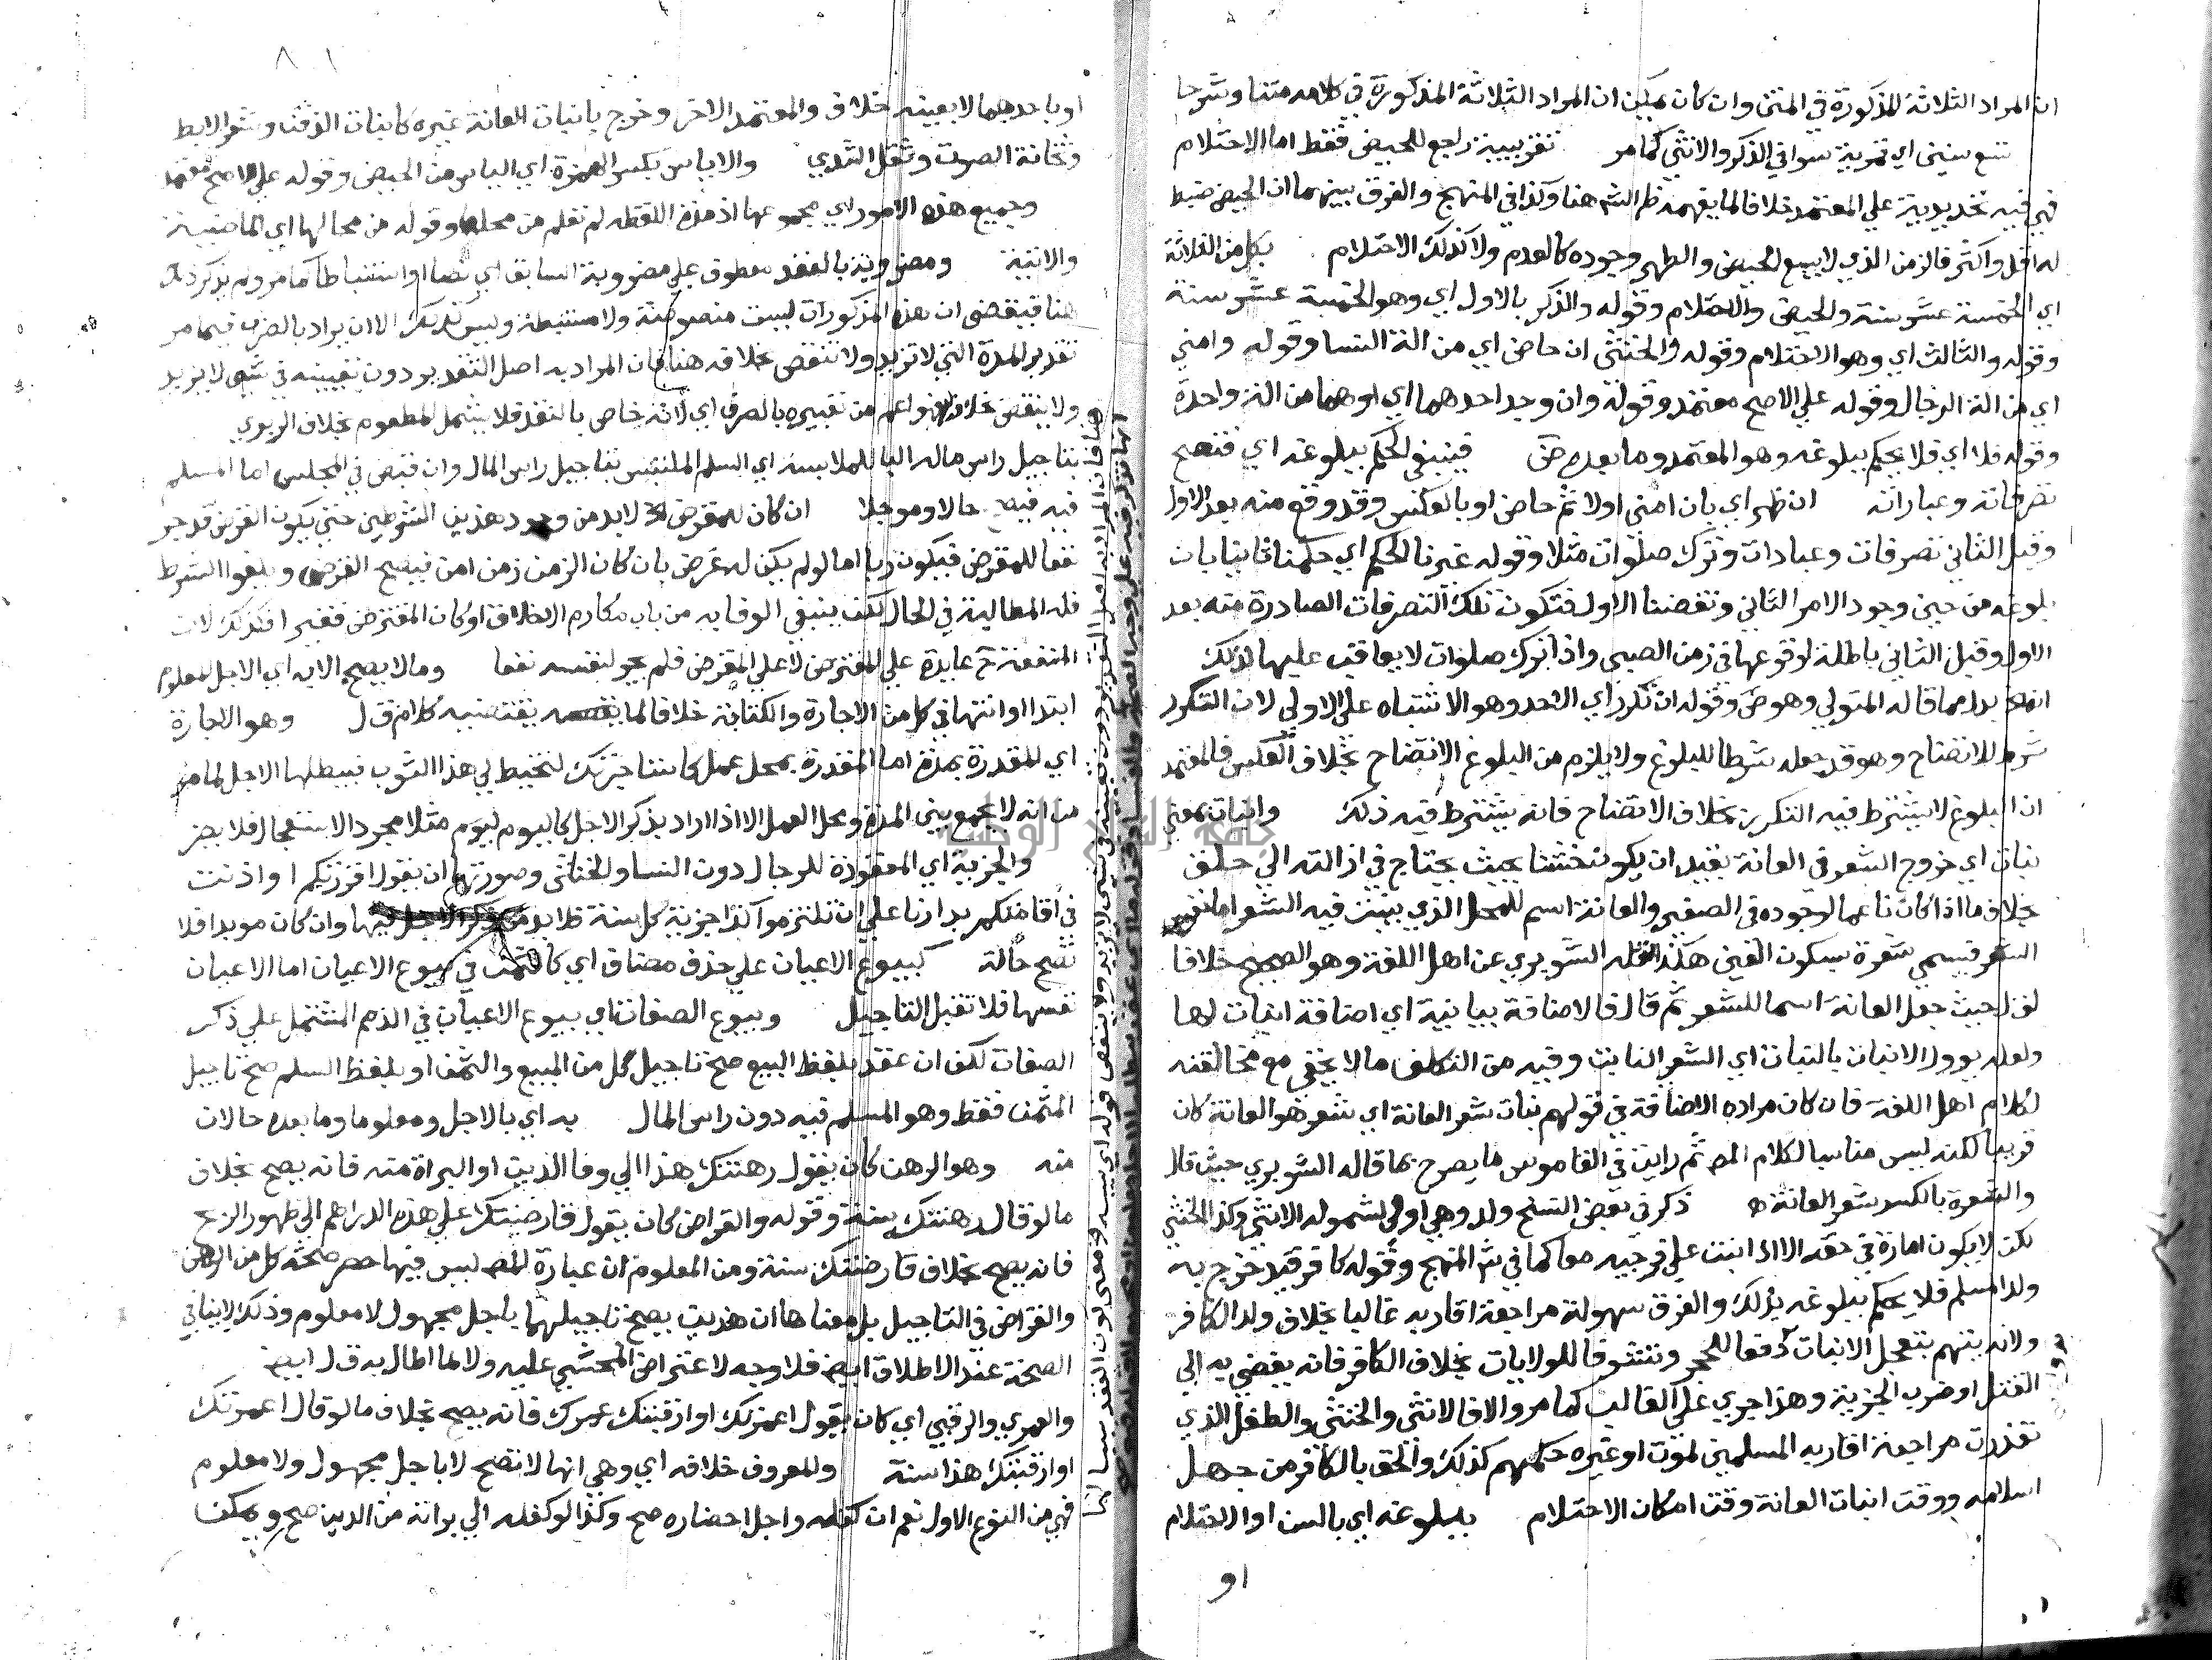 ان المراد الثلاثة المذكورة في المتن وان كان يمكن ان المراد الثلاثة المذكورة في كلامه متنا وشرحا
تسع سنين اي قمرية سوا في الذكر والانثي كما مر تقريبية راجع للحيض فقط اما الاحتلام
فهي فيه تحديدية علي المعتمد خلافا لما يفهمه ظ الش هنا وكذا في المنهج والفرق بينهما ان الحيض ضبط
له اقل واكثر فالزمن الذي لا يسع الحيض والطهر وجوده كالعدم ولا كذلك الاحتلام بكل من الثلاثة
اي الخمسة عشر سنة والحيض والاحتلام وقوله والذكر بالاول اي وهو الخمسة عشر سنة
وقوله والثالث اي وهو الاحتلام وقوله والخنثي ان حاض اي من الة النسا وقوله وامني
اي من الة الرجال وقوله علي الاصح معتمد وقوله وان وجد احدهما اي او هما من الة واحدة
وقوله فلا اي فلا يحكم ببلوغه وهو المعتمد وما بعده ض فينبغي الحكم ببلوغه اي فتصح
تصرفاته وعباراته ان ظهر اي بان امني اولا ثم حاض او بالعكس وقد وقع منه بعد الاول
وقبل الثاني تصرفات وعبادات وترك صلوات مثلا وقوله غيرنا الحكم اي حكمنا ثانيا بان
بلوغه من حين وجود الامر الثاني ونقضنا الاول فتكون تلك التصرفات الصادرة منه بعد
الاول وقبل الثاني باطلة لوقوعها في زمن الصبي واذا ترك صلوات لا يعاقب عليها لذلك
مما قاله المتولي وهو ض وقوله ان تكرر اي الاحد وهو الاشتباه علي الاولي لان التكرر
شرط للاتضاح وهو قد جعله شرطا للبلوغ ولا يلزم من البلوغ الاتضاح بخلاف العكس فالمعتمد
ان البلوغ لا يشترط فيه التكرر بخلاف الاتضاح فانه يشترط فيه ذلك وانبات بمعني
نبات اي خروج الشعر في العانة بقيد ان يكون خشنا بحيث يحتاج في ازالته الي حلق
بخلاف ما اذا كان ناعما لوجوده في الصغير والعانة اسم للمحل الذي ينبت فيه الشعر اما نفس
الشعر فيسمي شعرة بسكون العين هكذا نقله الشوبري عن اهل اللغة وهو الصحيح خلافا
لقول حيث جعل العانة اسما للشعر ثم قال فالاضافة بيانية اي اضافة انبات لها
ولعله يوول الانبات بالنبات اي الشعر النابت وفيه من التكلف ما لا يخفي مع مخالفته
لكلام اهل اللغة فان كان مراده الاضافة في قولهم نبات شعر العانة اي شعر هو العانة كان
قريبا لكنه ليس مناسبا لكلام المص ثم رايت في القاموس ما يصرح بما قاله الشوبري حيث قال
والشعرة بالكسر شعر العانة ذكر في بعض النسخ ولد وهي اولي لشموله الانثي وكذا الخنثي
لكن لا يكون امارة في حقه الا اذا انبت علي فرجيه معا كما في ش المنهج وقوله كافر قيد خرج به
ولد المسلم فلا يحكم ببلوغه بذلك والفرق سهولة مراجعة اقاربه غالبا بخلاف ولد الكافر
ولانه يتهم بتعجل الانبات دفعا للحجر وتشوفا للولايات بخلاف الكافر فانه يفضي به الي
القتل او ضرب الجزية وهذا جري علي الغالب كما مر والا فالانثي والخنثي والطفل الذي
تعذرت مراجعة اقاربه المسلمين لموت او غيره حكمهم كذلك والحق بالكافر من جهل
اسلامه ووقت انبات العانة وقت امكان الاحتلام ببلوغه اي بالسن او الاحتلام
او
٨١
او باحدهما لا بعينه خلاف والمعتمد الاخر وخرج بانبات العانة غيره كانبات الذقن وشعر الابط
وثخانة الصوت وثقل الثدي والاياس بكسر الهمزة اي الياس من الحيض وقوله علي الاصح معتمد
وجميع هذه الامور اي مجموعها اذ مدة اللقطة لم تعلم من محلها وقوله من محالها اي الماضية
والاتية ومضروبة بالعقد معطوف علي مضروبة السابق اي نصا او استنباطا كما مر ولم يذكر ذلك
هنا فيقتضي ان هذه المذكورات ليست منصوصة ولا مستنبطة وليس كذلك الا ان يراد بالضرب فيما مر
تقدير المدة التي لا تزيد ولا تنقص بخلافه هنا فان المراد به اصل التقدير دون تعيينه في شي لا يزيد
ولا ينقص اعم من تعبيره بالصرف اي لانه خاص بالنقد فلا يشمل المطعوم بخلاف الربوي
بتاجيل راس ماله البا للملابسة اي السلم الملتبس بتاجيل راس المال وان قبض في المجلس اما المسلم
فيه فيصح حالا وموجلا ان كان للمقرض لا بد من وجود هذين الشرطين حتي يكون القرض قد جر
نفعا للمقرض فيكون ربا اما لو لم يكن له غرض بان كان الزمن زمن امن فيصح القرض ويلغوا الشرط
فله المطالبة في الحال لكن ينبغي الوفا به من باب مكارم الاخلاق او كان المقترض فقيرا فكذلك لان
المنفعة ح عايدة علي المقترض لا علي المقرض فلم يجر لنفسه نفعا وما لا يصح الا به اي الاجل المعلوم
ابتدا او انتها في كل من الاجارة والكتابة خلافا لما يقتضيه كلام ق ل وهو الاجارة
اي المقدرة بمدة اما المقدرة بمحل عمل كاستاجرتك لتخيط لي هذا الثوب فيبطلها الاجل لما مر
من انه لا يجمع بين المدة ومحل العمل الا اذا اراد بذكر الاجل كاليوم مثلا مجرد الاستعجال فلا يضر
والجزية اي المعقودة للرجال دون النسا والخناثي وصورتها ان يقول اقررتكم او اذنت
في اقامتكم بدارنا علي ان تلتزموا كذا جزية كل سنة وان كان موبدا فلا
تصح حالة كبيوع الاعيان علي حذف مضاف اي كالثمن في بيوع الاعيان اما الاعيان
نفسها فلا تقبل التاجيل وبيوع الصفات اي بيوع الاعيان في الذمم المشتمل علي ذكر
الصفات لكن ان عقد بلفظ البيع صح تاجيل كل من المبيع والثمن او بلفظ السلم صح تاجيل
المثمن فقط وهو المسلم فيه دون راس المال به اي بالاجل ومعلوما وما بعده حالان
منه وهو الرهن كان يقول رهنتك هذا الي وفا الدين او البراة منه فانه يصح بخلاف
ما لو قال رهنتك سنة وقوله والقراض كان يقول قارضتك علي هذه الدراهم الي ظهور الربح
فانه يصح بخلاف قارضتك سنة ومن المعلوم ان عبارة المص ليس فيها حصر صحة كل من الرهن
والقراض في التاجيل بل معناها ان هذين يصح تاجيلهما باجل مجهول لا معلوم وذلك لا ينافي
الصحة عند الاطلاق ايض فلا وجه لاعتراض المحشي عليه ولا لما اطال به ق ل ايض
والعمري والرقبي اي كان يقول اعمرتك او ارقبتك عمرك فانه يصح بخلاف ما لو قال اعمرتك
او ارقبتك هذا سنة والمعروف خلافه اي وهي انها لا تصح لا باجل مجهول ولا معلوم
فهي من النوع الاول نعم ان كفله واجل احضاره صح وكذا لو كفله الي براته من الدين صح ويمكن
جامعة النجاح الوطنية